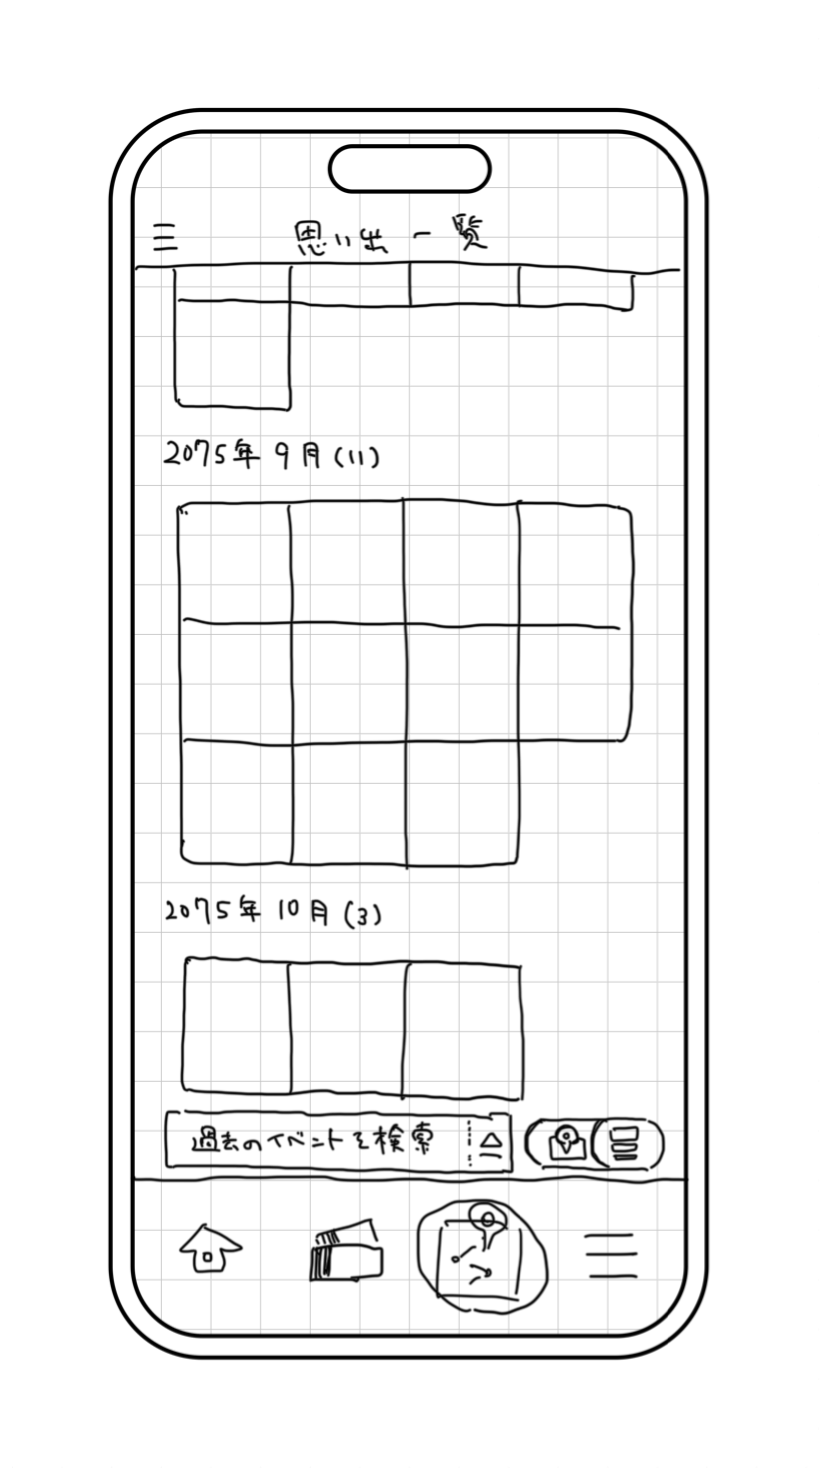 思い出一覧
2075年9月(11)
2075年10月(3)
過去のイベントを検索